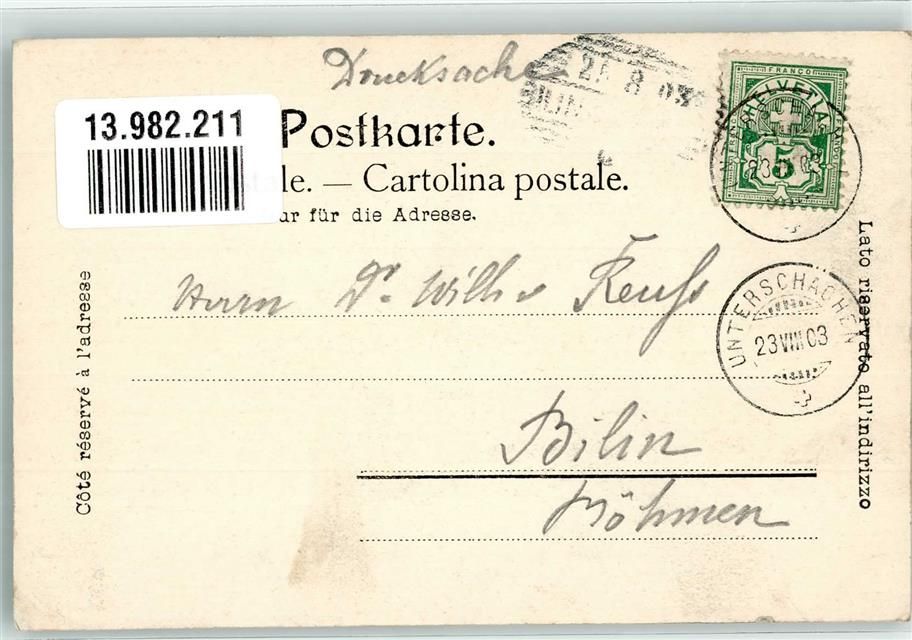 Drucksache
25 8 03
BILIN
13.982.211
Postkarte.
le. — Cartolina postale.
ur für die Adresse.
FRANCO
HELVETIA
5
23
UNTERSCHÄCHEN
23 VIII 03
Herrn Dr. Wilh. Reuß
Bilin
Böhmen
Côté réservé à l'adresse
Lato riservato all'indirizzo